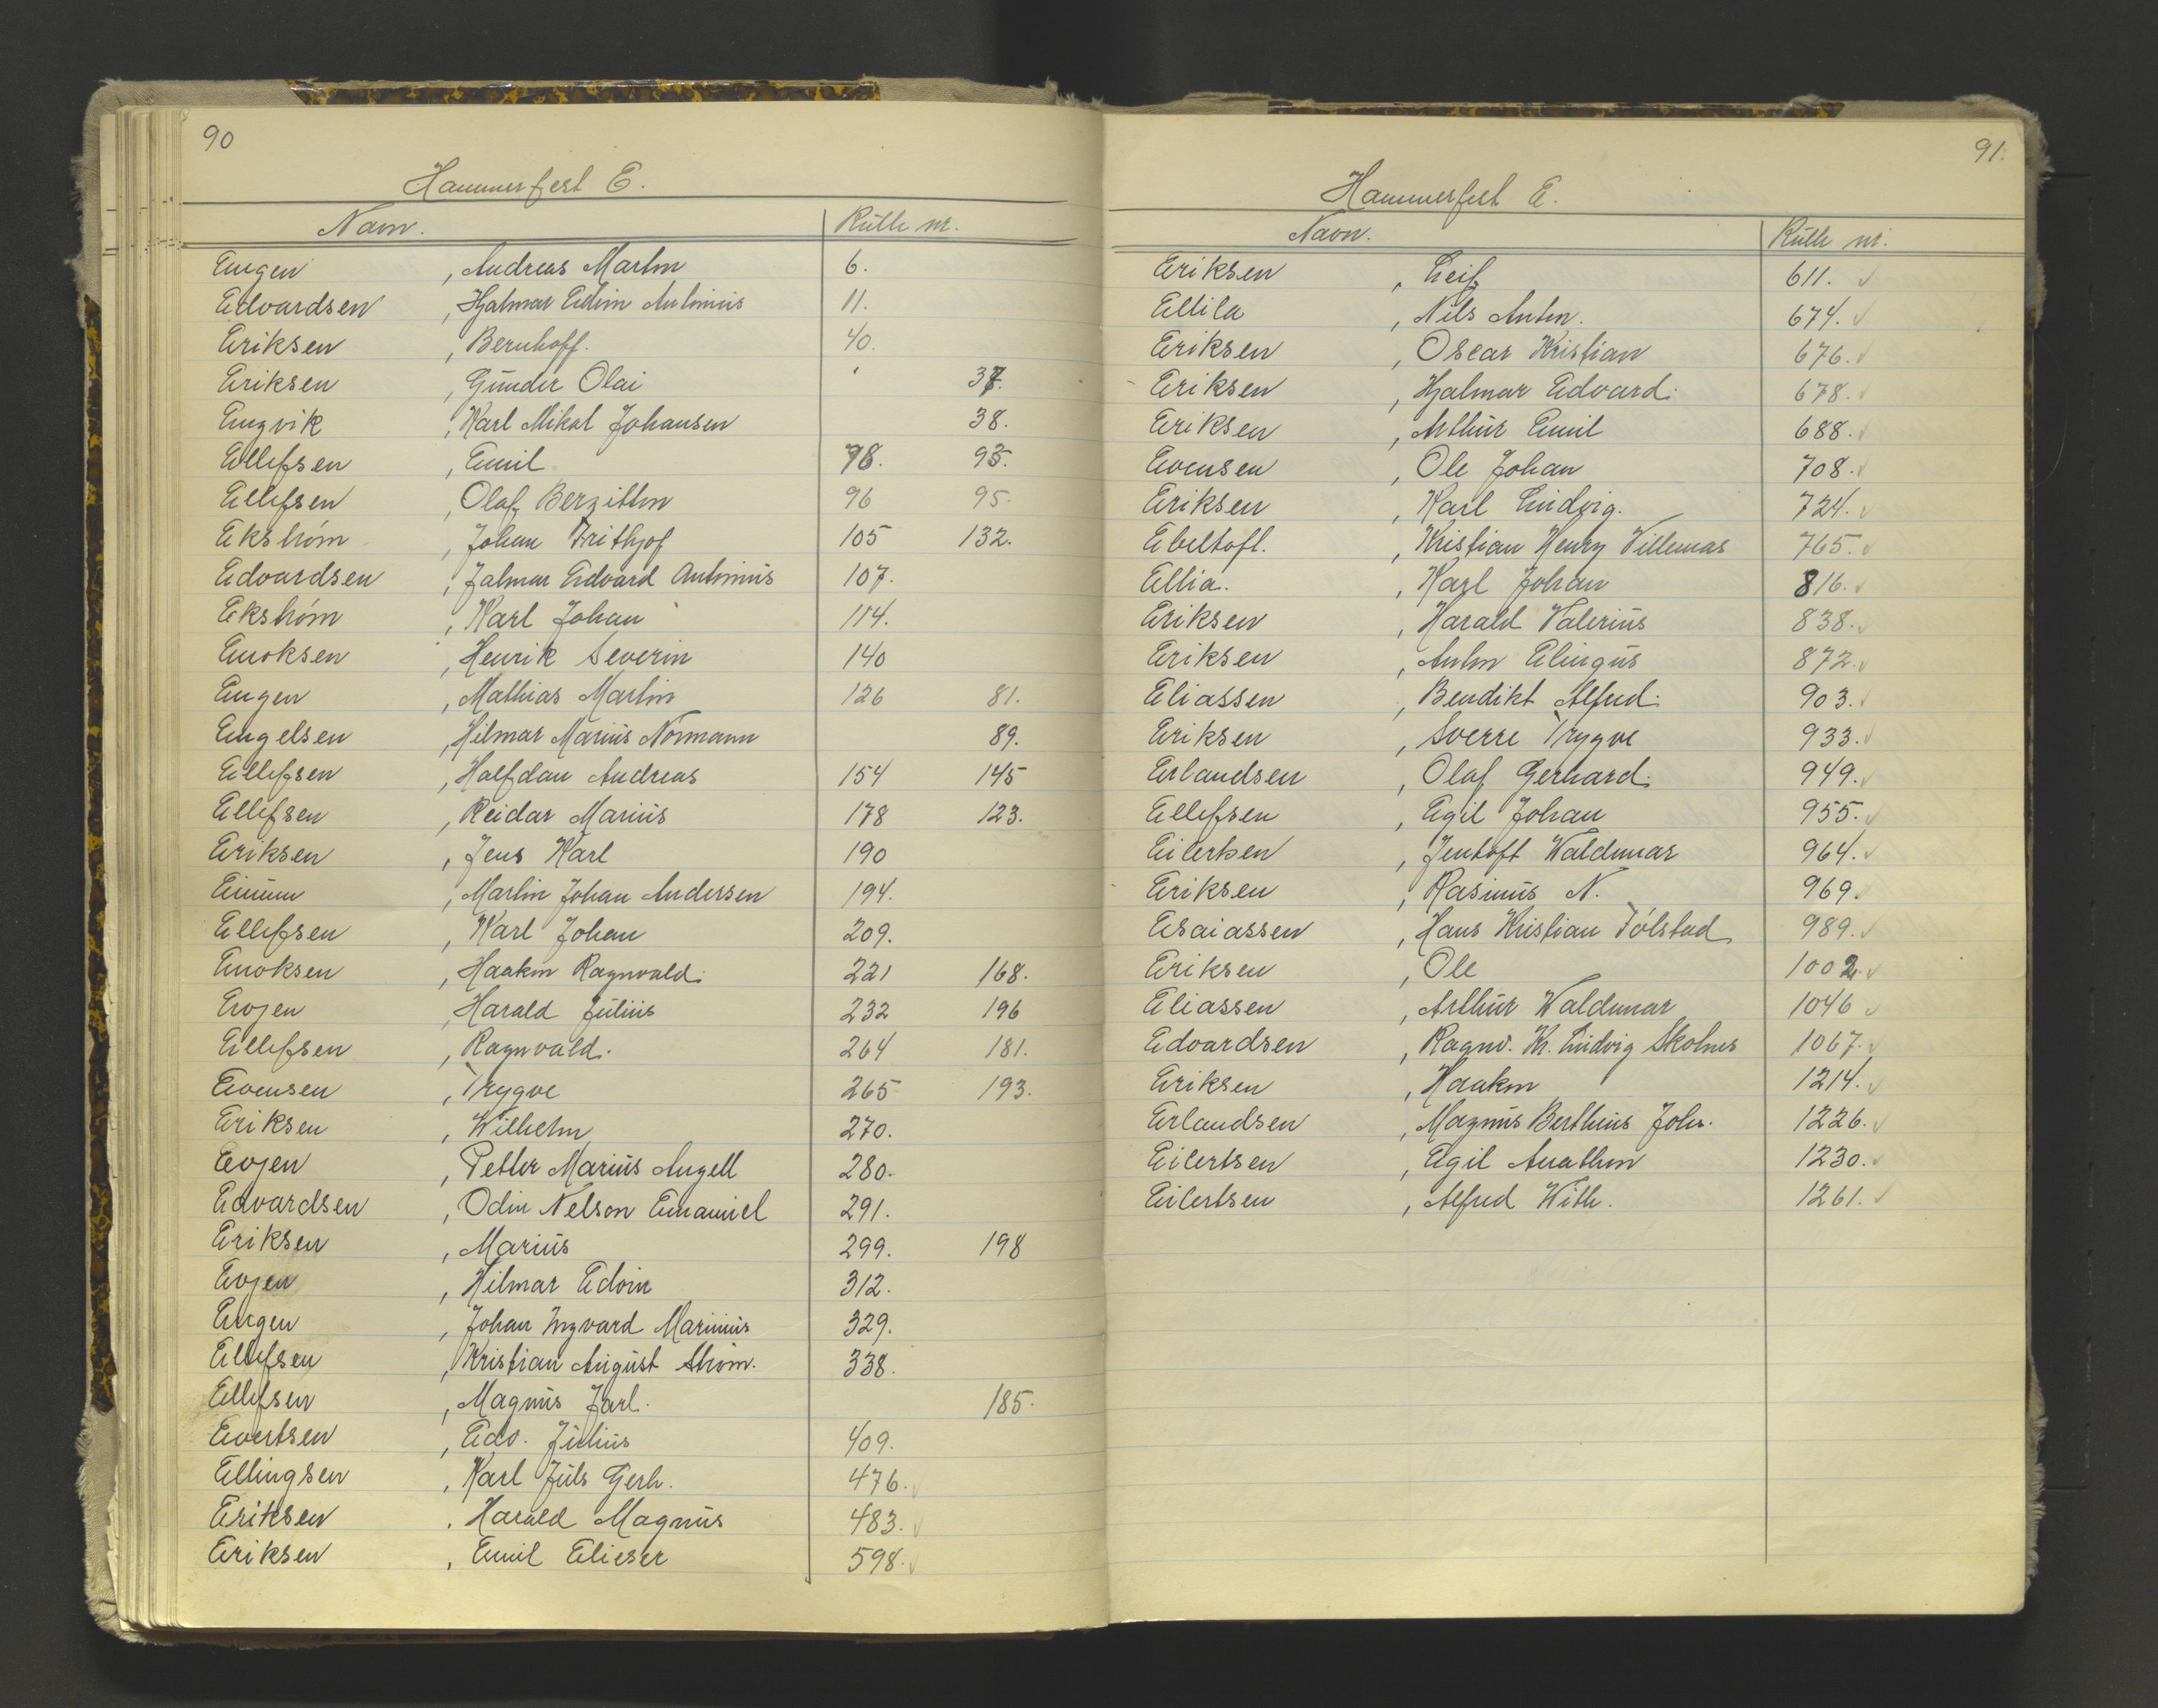 90
Hammerfest E.
Navn. Rulle nr.
Engen , Andreas Martin 6.
Edvardsen , Hjalmar Edvin Antonius 11.
Eriksen , Bernhoff. 40.
Eriksen , Gunder Olai 37.
Engvik , Karl Mikal Johansen 38.
Ellefsen , Emil 98. 93.
Ellefsen , Olaf Bergithon 96 95.
Ekström , Johan Frithjof 105 132.
Edvardsen , Jalmar Edvard Antonius 107.
Ekström , Karl Johan 114.
Enoksen , Henrik Severin 140
Engen , Mathias Martin 126 81.
Engelsen , Hilmar Marius Normann 89.
Ellefsen , Halfdan Andreas 154 145
Ellefsen , Reidar Marius 178 123.
Eriksen , Jens Karl 190
, Martin Johan Andersen 194.
Ellefsen , Karl Johan 209.
Enoksen , Haakon Ragnvald. 221 168.
Evjen , Harald Julius 232 196
Ellefsen , Ragnvald. 264 181.
Evensen , Trygve 265 193.
Eriksen , Wilhelm 270.
Evjen , Petter Marius Angell 280.
Edvardsen , Odin Nelson Emanuel 291.
Eriksen , Marius 299. 198
Evjen , Hilmar Edvin 312.
Engen , Johan Ingvard Marinius 329.
Ellefsen , Kristian August Strøm. 338.
Ellefsen , Magnus Jarl. 185.
Evertsen , Edv. Julius 409.
Ellingsen , Karl Juls Gerh. 476. ✓
Eriksen , Harald Magnus 483. ✓
Eriksen , Emil Elieser 598. ✓
91.
Hammerfest E.
Navn. Rulle nr.
Eriksen , Leif 611. ✓
Ellila , Nils Anton. 674. ✓
Eriksen , Oscar Kristian 676. ✓
Eriksen , Hjalmar Edvard. 678. ✓
Eriksen , Arthur Emil 688. ✓
Evensen , Ole Johan 708. ✓
Eriksen , Karl Ludvig. 724. ✓
Ebeltoft. , Kristian Henry Villemas 765. ✓
Ellia. , Karl Johan 816. ✓
Eriksen , Harald Valerius 838. ✓
Eriksen , Anton Elingus 872. ✓
Eliassen , Bendikt Alfred. 903. ✓
Eriksen , Sverre Trygve 933. ✓
Erlandsen , Olaf Gerhard. 949. ✓
Ellefsen , Egil Johan 955. ✓
Eilertsen , Jentoft Waldemar 964. ✓
Eriksen , Rasmus N. 969. ✓
Esaiassen , Hans Kristian Tölstad 989. ✓
Eriksen , Ole 1002. ✓
Eliassen , Arthur Waldemar 1046 ✓
Edvardsen , Ragnv. Kr. Ludvig Skolnes 1067. ✓
Eriksen , Haakon 1214. ✓
Erlandsen , Magnus Berthius Johs. 1226. ✓
Eilertsen , Egil Anathon 1230. ✓
Eilertsen , Alfred With. 1261. ✓